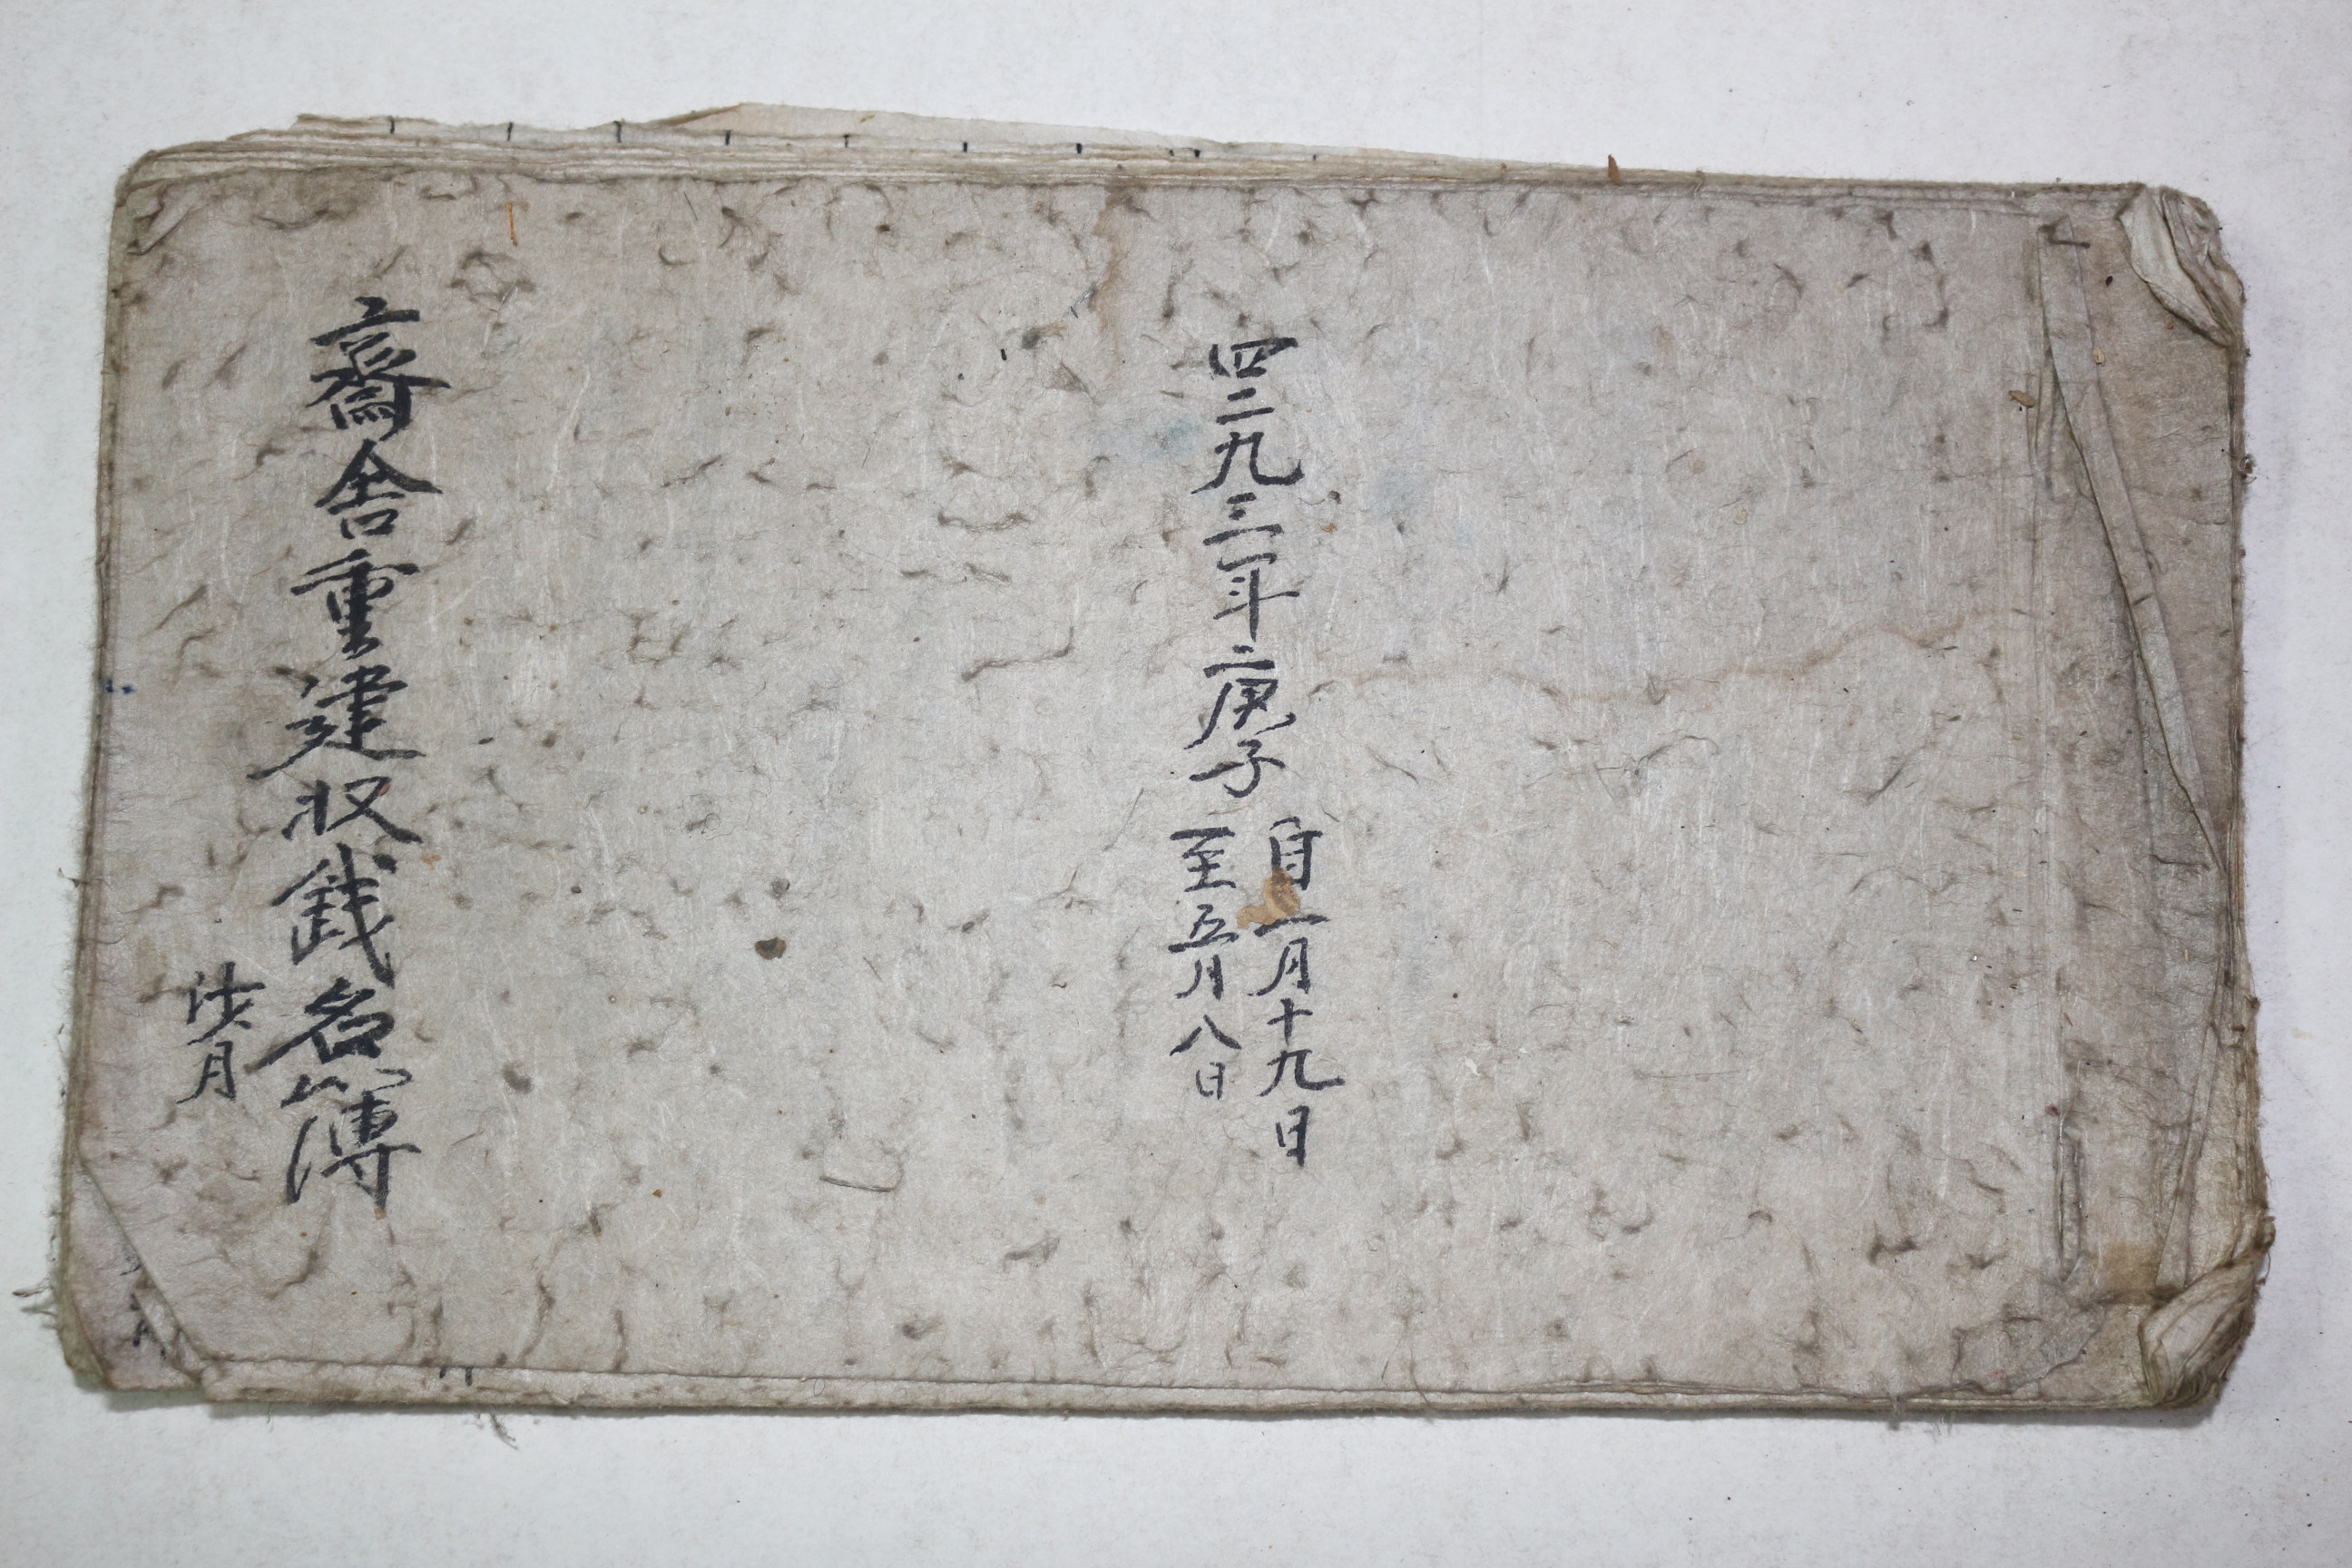 四二九三年庚子
自一月十九日
至五月八日
齋舍重建収銭名簿
月